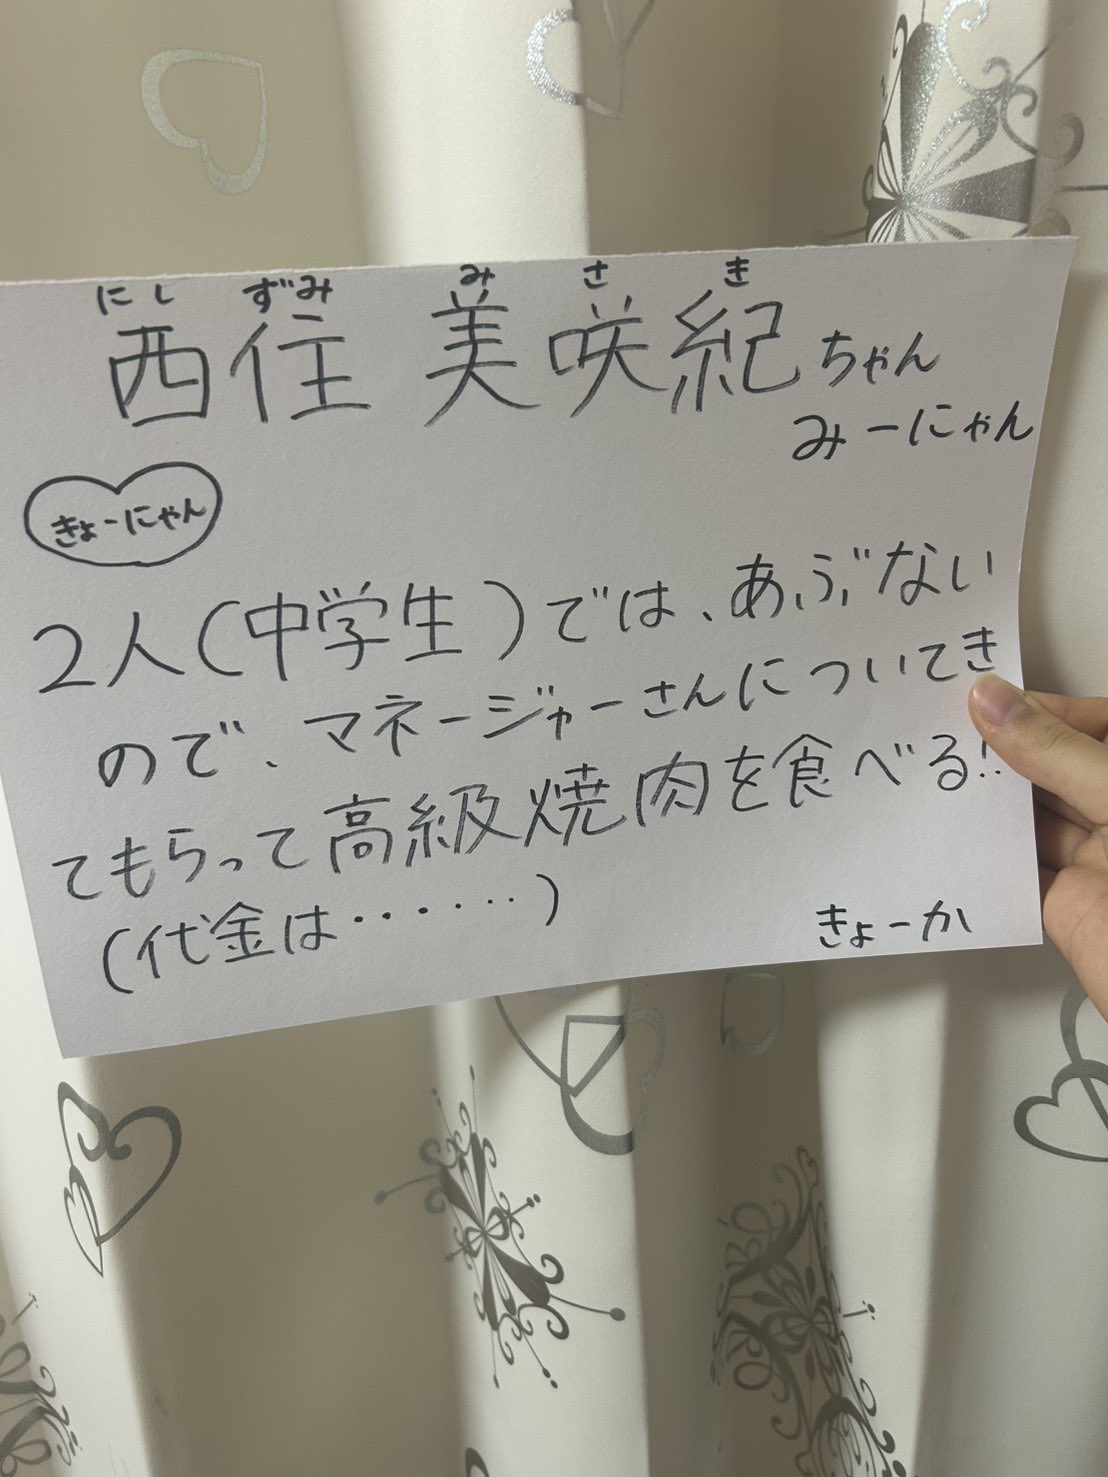 にし ずみ み さ き
西住 美咲紀ちゃん
みーにゃん
きょーにゃん
2人(中学生)では、あぶない
ので、マネージャーさんについてき
てもらって高級焼肉を食べる!!
(代金は・・・・・・)
きょーか